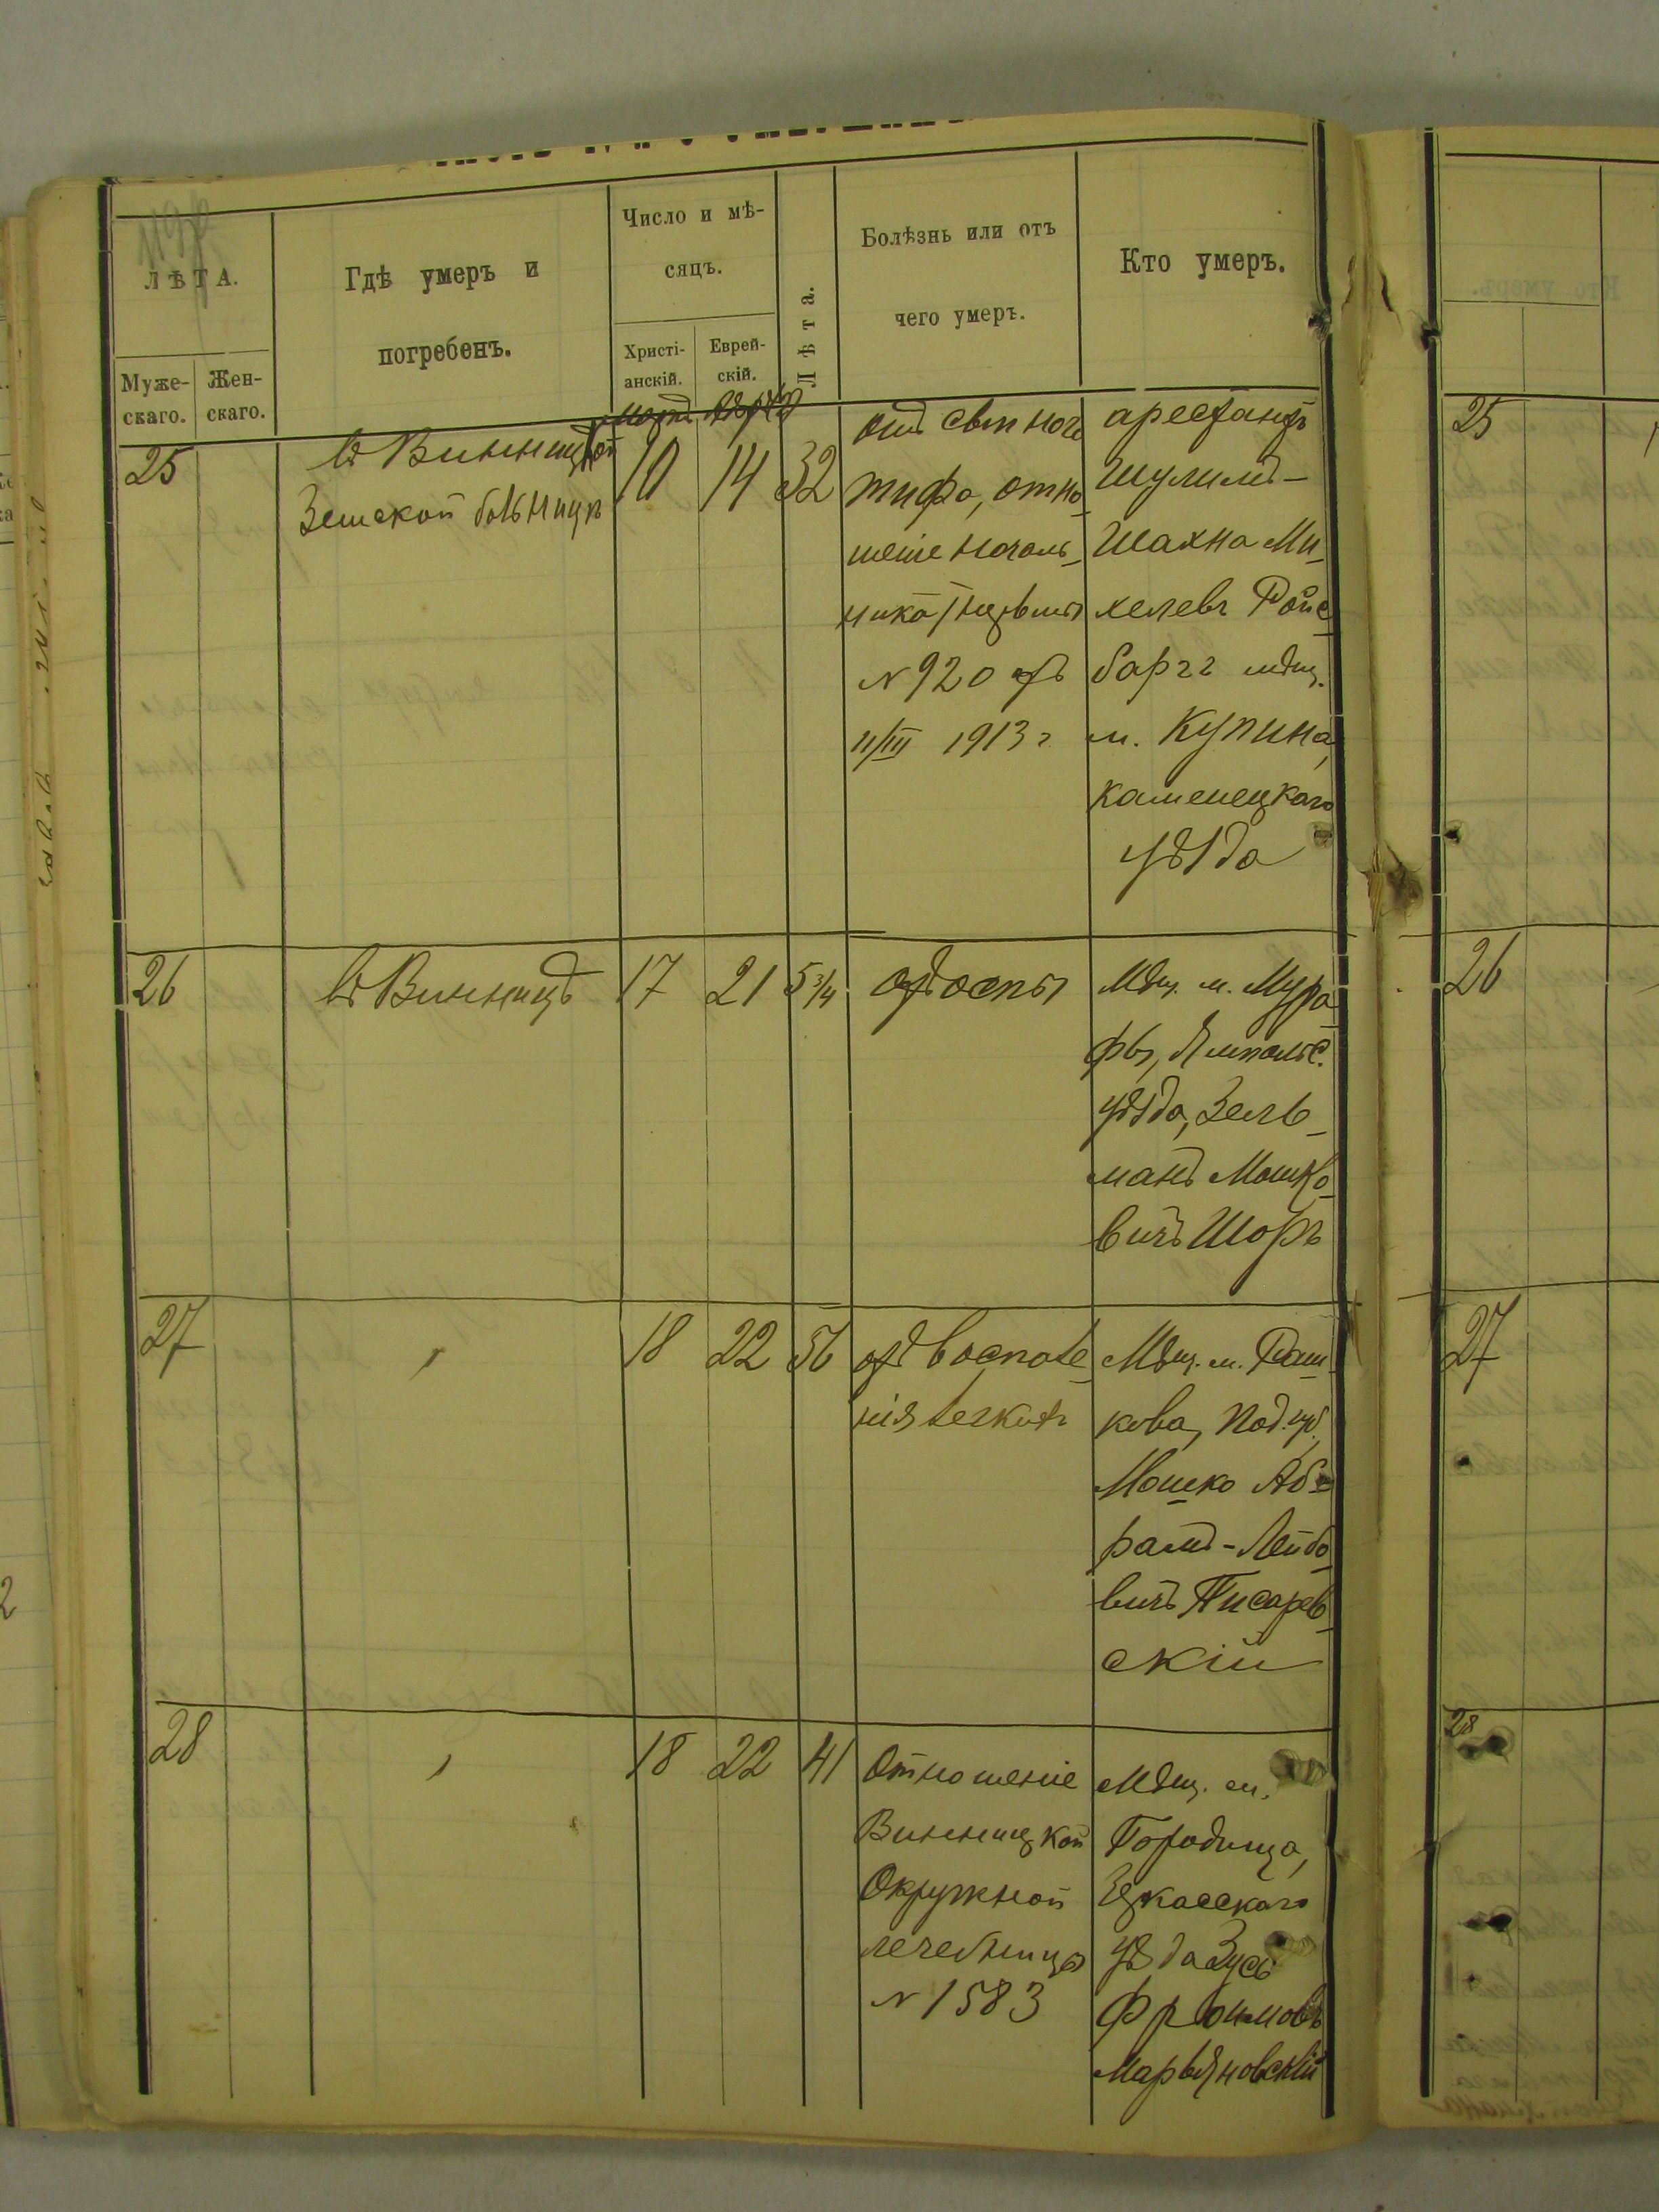 ЛѢТА.
Муже-
скаго.
Жен-
скаго.
Гдѣ умеръ и
погребенъ.
Число и мѣ-
сяцъ.
Христі-
анскій.
Еврей-
скій.
Лѣта.
Болѣзнь или отъ
чего умеръ.
Кто умеръ.
25
въ Винницкой
Земской больницѣ
10
14
32
отъ сыпного
тифа, отно-
шеніе началь-
ника тюрьмы
№ 920 отъ
11/III 1913 г
арестантъ
Шулимъ-
Шахна Ми-
хелевъ Ройс-
баргъ мѣщ.
м. Купина,
Каменецкаго
уѣзда
26
въ Винницѣ
17
21
5 3/4
отъ оспы
Мѣщ. м. Мура-
фы, Ямпольс.
уѣзда, Зель-
манъ Мошко-
вичъ Шоръ
27
"
18
22
56
отъ воспале-
нія легкихъ
Мѣщ. м. Раш-
кова, Под. губ.,
Мошко Аб-
рамъ-Лейбо-
вичъ Писарев-
скій
28
"
18
22
41
Отношеніе
Винницкой
Окружной
лечебницы
№ 1583
Мѣщ. м.
Городища,
Черкасскаго
уѣзда Зусь
Фроимовъ
Марьяновскій
25
26
27
28